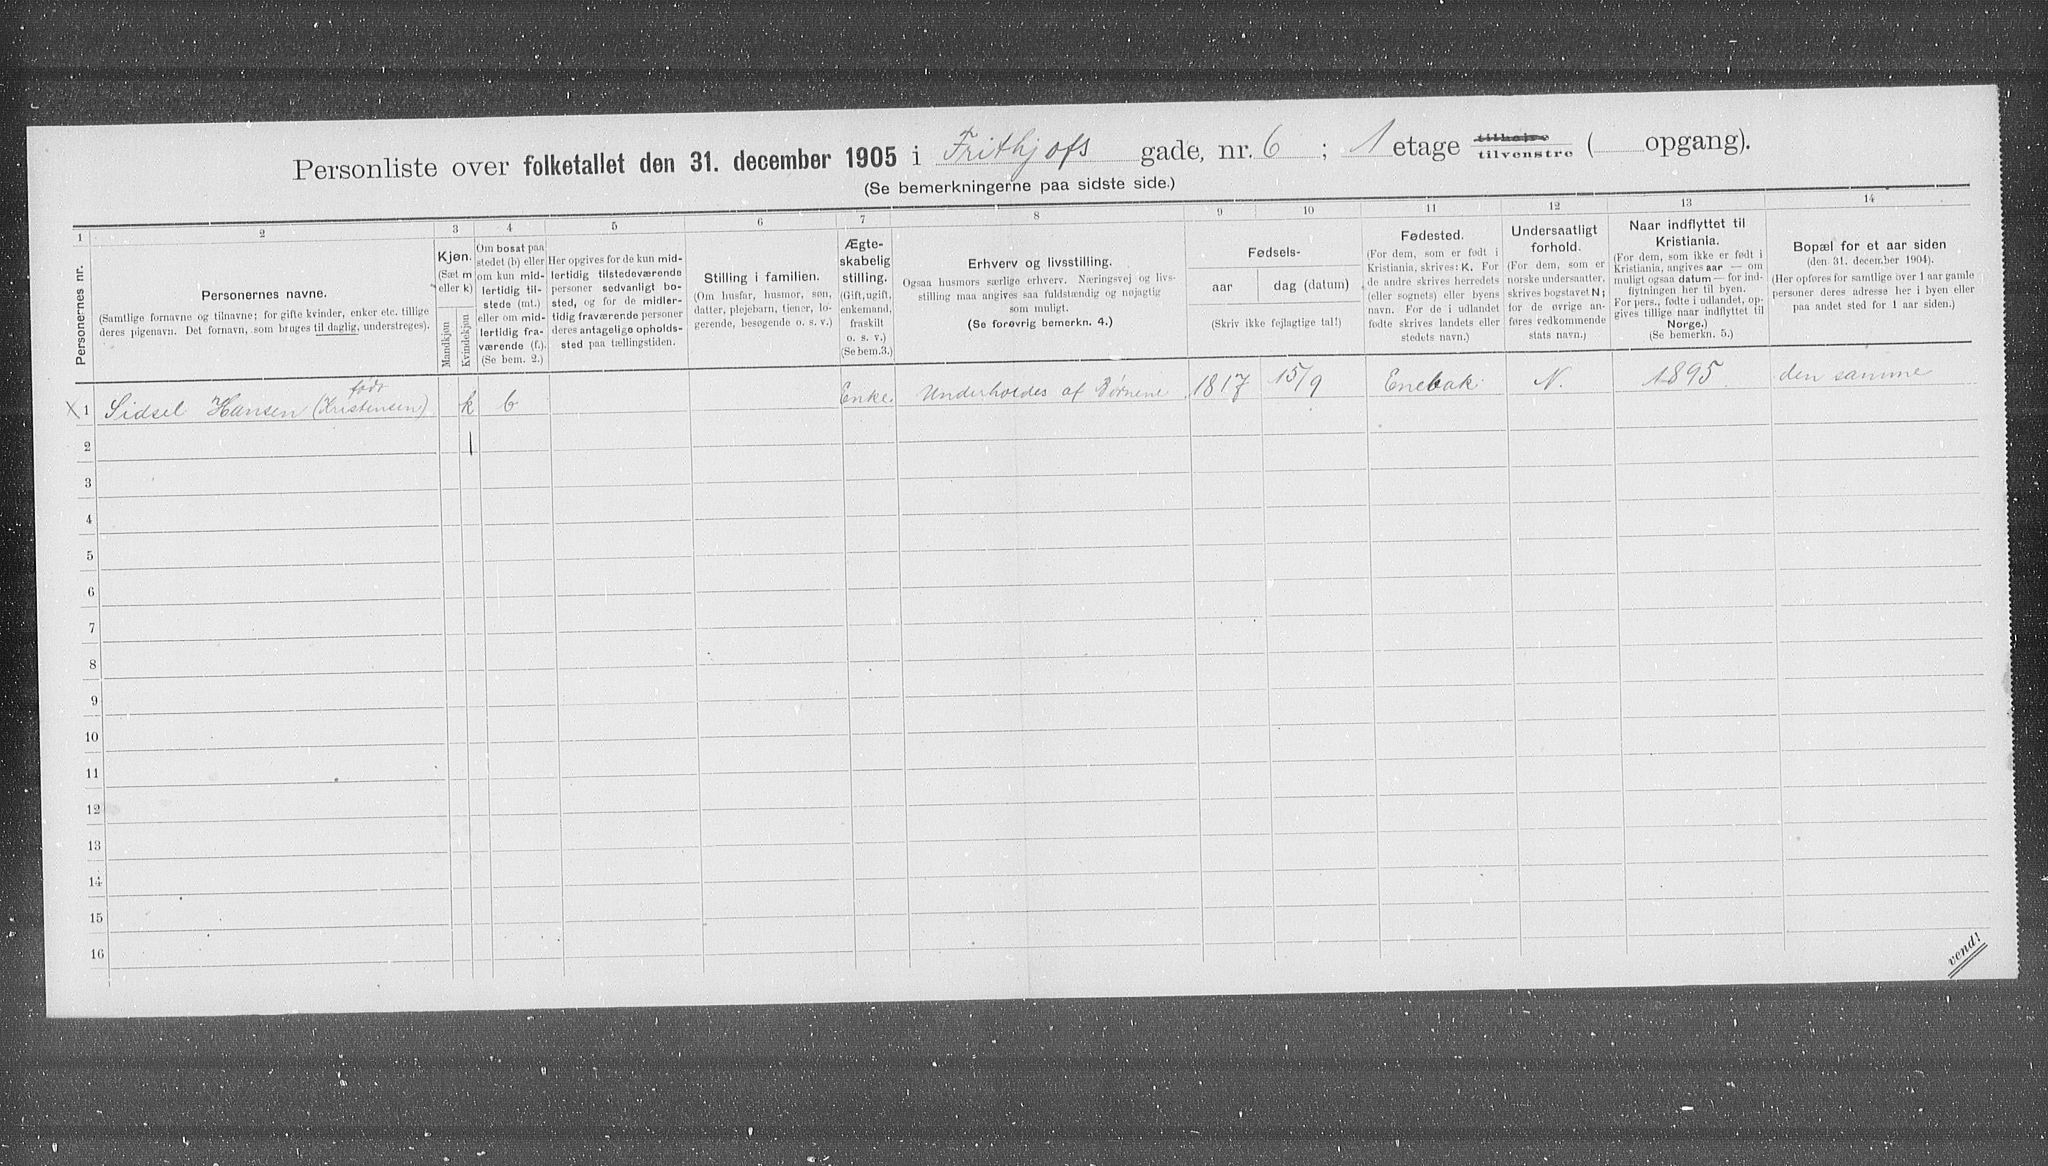 Personliste over folketallet den 31. december 1905 i Frithjofs gade, nr. 6 ; 1 etage tilhøjre tilvenstre ( opgang).
(Se bemerkningerne paa sidste side.)
1 2 3 4 5 6 7 8 9 10 11 12 13 14
Personernes nr.
Personernes navne.
(Samtlige fornavne og tilnavne; for gifte kvinder, enker etc. tillige
deres pigenavn. Det fornavn, som bruges til daglig, understreges).
Kjøn.
(Sæt m
eller k)
Mandkjøn
Kvindekjøn
Om bosat paa
stedet (b) eller
om kun mid-
lertidig til-
stede (mt.)
eller om mid-
lertidig fra-
værende (f.).
(Se bem. 2.)
Her opgives for de kun mid-
lertidig tilstedeværende
personer sedvanligt bo-
sted, og for de midler-
tidig fraværende personer
deres antagelige opholds-
sted paa tællingstiden.
Stilling i familien.
(Om husfar, husmor, søn,
datter, plejebarn, tjener, lo-
gerende, besøgende o. s. v.)
Ægte-
skabelig
stilling.
(Gift, ugift,
enkemand,
fraskilt
o. s. v.)
(Se bem.3.)
Erhverv og livsstilling.
Ogsaa husmors særlige erhverv. Næringsvej og livs-
stilling maa angives saa fuldstændig og nøjagtig
som muligt.
(Se forøvrig bemerkn. 4.)
Fødsels-
aar
dag (datum)
(Skriv ikke fejlagtige tal!)
Fødested.
(For dem, som er født i
Kristiania, skrives: K. For
de andre skrives herredets
(eller sognets) eller byens
navn. For de i udlandet
fødte skrives landets eller
stedets navn.)
Undersaatligt
forhold.
(For dem, som er
norske undersaatter,
skrives bogstavet N;
for de øvrige an-
føres vedkommende
stats navn.)
Naar indflyttet til
Kristiania.
(For dem, som ikke er født i
Kristiania, angives aar — om
muligt ogsaa datum — for ind-
flytningen her til byen.
For pers., fødte i udlandet, op-
gives tillige naar indflyttet til
Norge.)
(Se bemerkn. 5.)
Bopæl for et aar siden
(den 31. december 1904).
(Her opføres for samtlige over 1 aar gamle
personer deres adresse her i byen eller
paa andet sted for 1 aar siden.)
født
X 1 Sidsel Hansen (Kristensen) k b Enke. Underholdes af Børnene 1817 15/9 Enebak. N. 1895. den samme
2
3
4
5
6
7
8
9
10
11
12
13
14
15
16
vend!